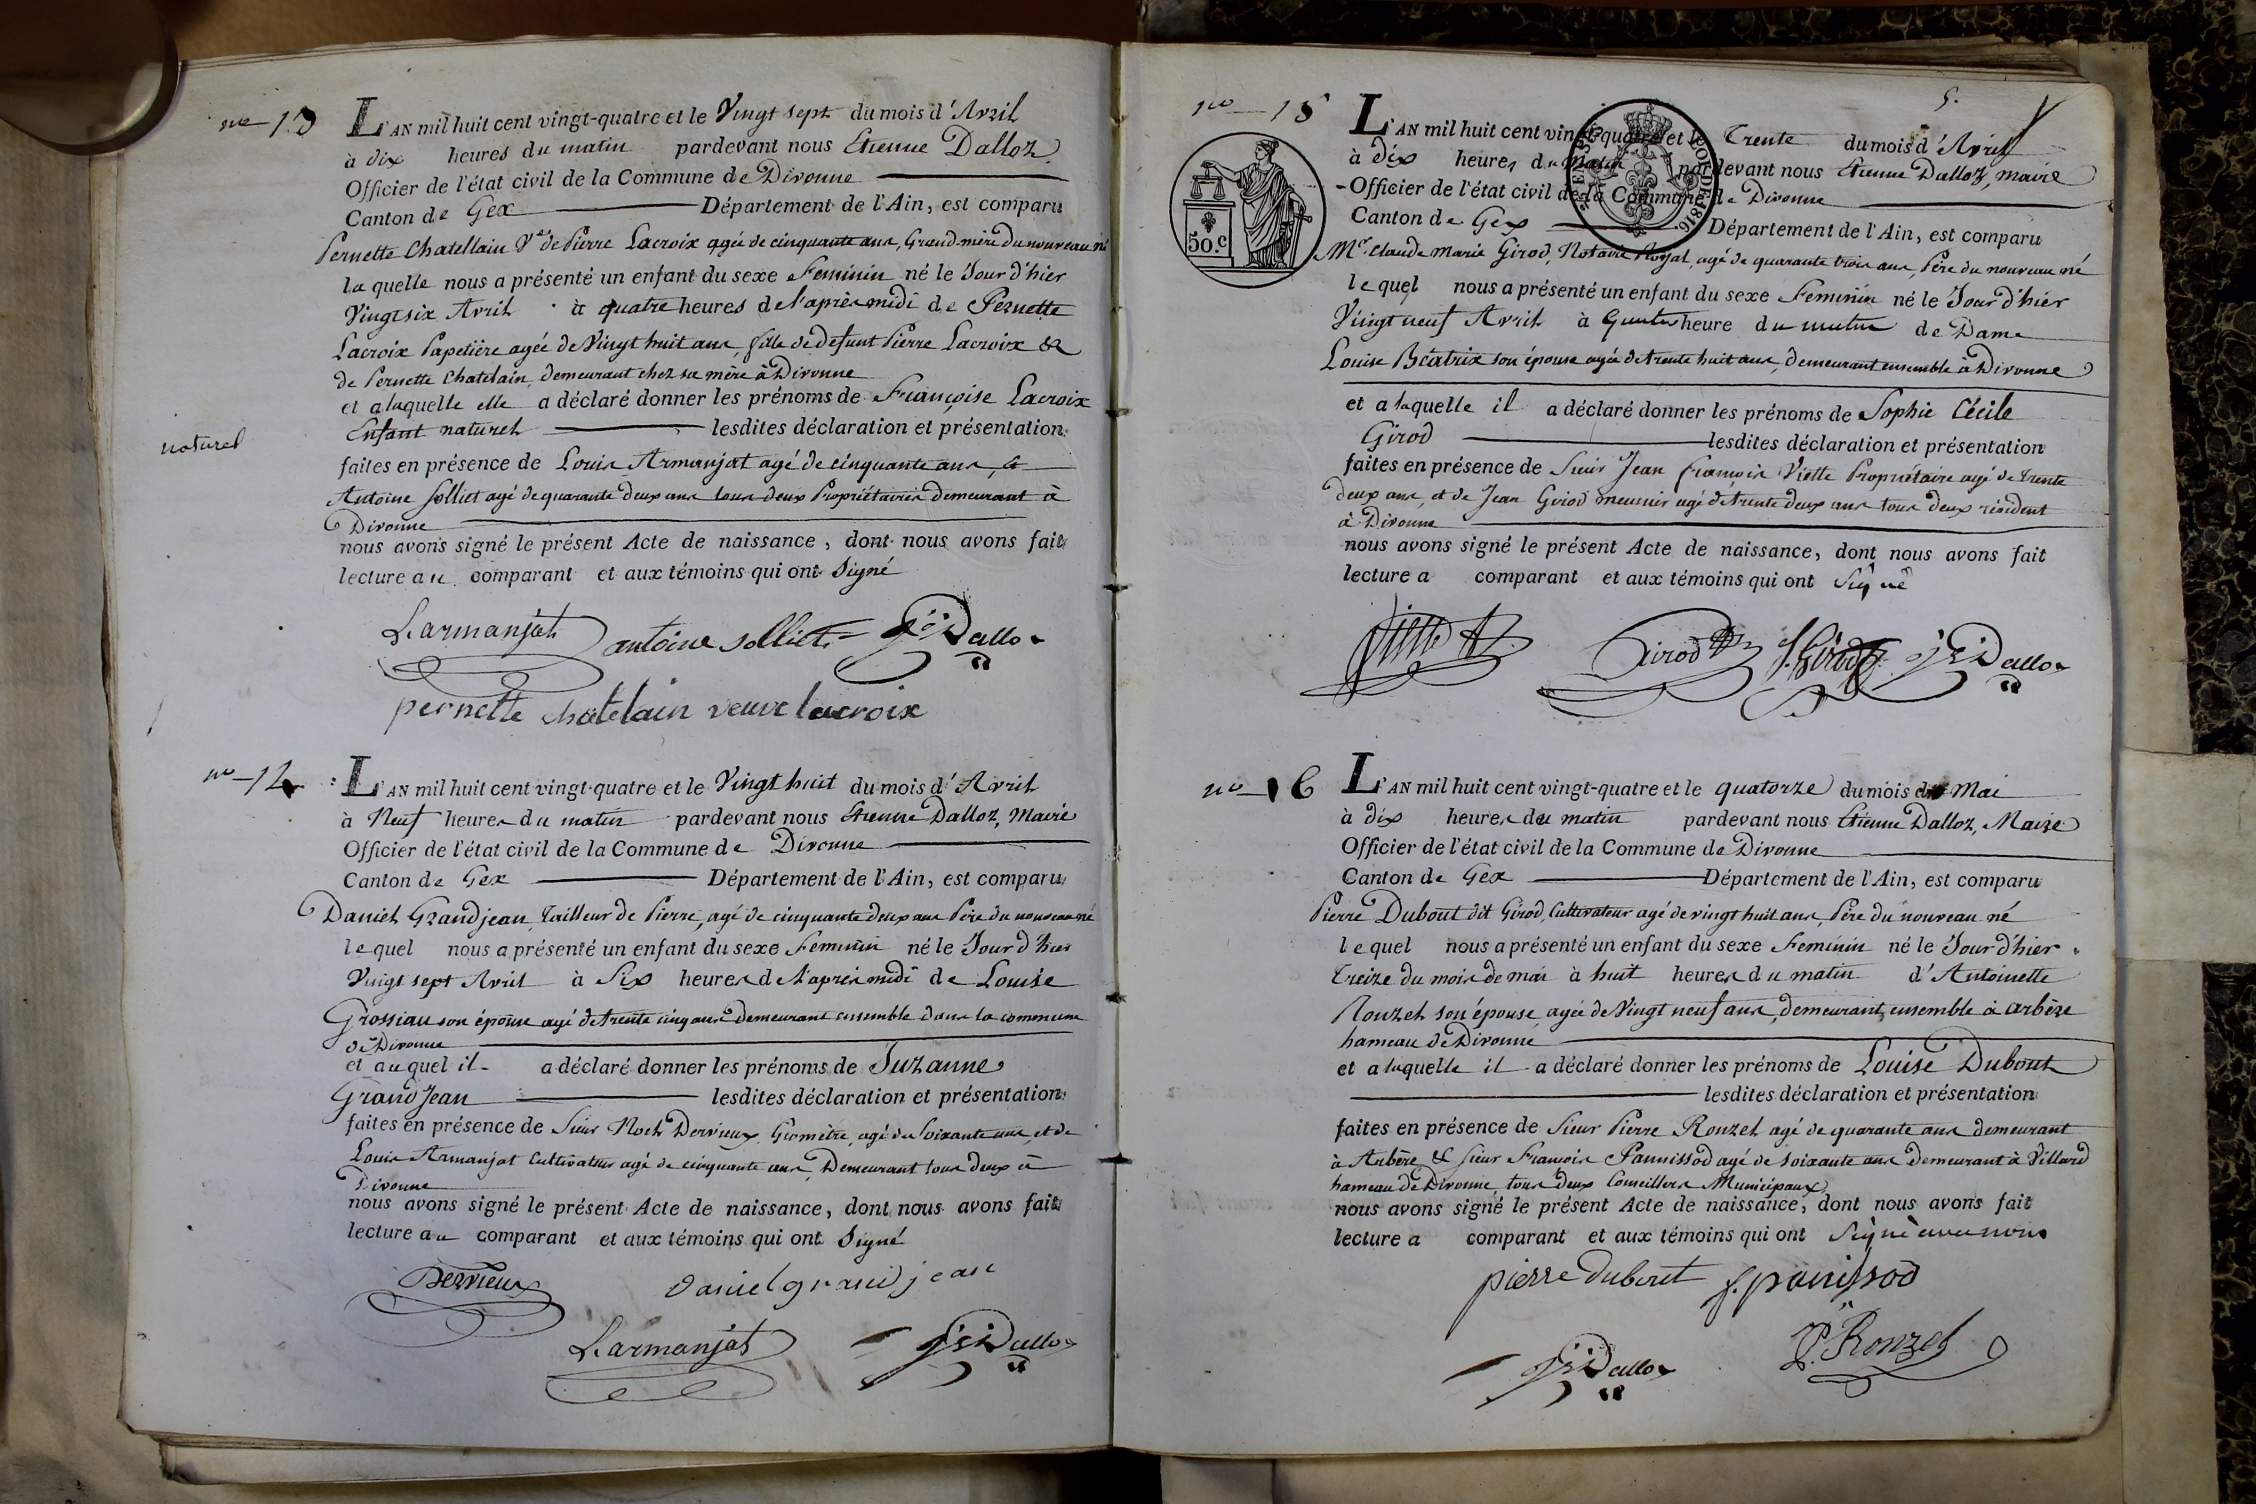 no 13
L'AN mil huit cent vingt-quatre et le Vingt sept du mois d'Avril
à dix heures du matin pardevant nous Etienne Dalloz
Officier de l'état civil de la Commune de Divonne
Canton de Gex Département de l'Ain, est comparu
Pernette Chatellain Ve de Pierre Lacroix agée de cinquante ans, Grand-mère du nouveau né
la quelle nous a présenté un enfant du sexe Feminin né le Jour d'hier
Vingt six Avril à quatre heures de l'après midi de Pernette
Lacroix Papetière agée de Vingt huit ans, fille de defunt Pierre Lacroix &
de Pernette Chatelain, demeurant chez sa mère à Divonne
et a laquelle elle a déclaré donner les prénoms de Françoise Lacroix
Enfant naturel lesdites déclaration et présentation
naturel
faites en présence de Louis Armanjat agé de cinquante ans, &
Antoine Solliet agé de quarante deux ans tous deux Propriétaires demeurant à
Divonne
nous avons signé le présent Acte de naissance, dont nous avons fait
lecture au comparant et aux témoins qui ont Signé
L. armanjat antoine solliet Dalloz
pernette chatelain veuve lacroix
no 14
L'AN mil huit cent vingt-quatre et le Vingt huit du mois d'Avril
à Neuf heures du matin pardevant nous Etienne Dalloz, Maire
Officier de l'état civil de la Commune de Divonne
Canton de Gex Département de l'Ain, est comparu
Daniel Grandjean, Tailleur de Pierre, agé de cinquante deux ans Père du nouveau né
le quel nous a présenté un enfant du sexe Feminin né le Jour d'hier
Vingt sept Avril à Six heures de l'après midi de Louise
Grossiau son épouse agé de trente cinq ans demeurant ensemble dans la commune
de Divonne
et au quel il a déclaré donner les prénoms de Suzanne
Grand Jean lesdites déclaration et présentation
faites en présence de Sieur Roch Dervieux, Géomètre, agé de Soixante ans, et de
Louis Armanjat Cultivateur agé de cinquante ans, Demeurant tous deux à
Divonne
nous avons signé le présent Acte de naissance, dont nous avons fait
lecture au comparant et aux témoins qui ont Signé
Dervieux daniel grandjean
L. armanjat Dalloz
no 15
5.
50.c
L'AN mil huit cent vingt-quatre et le Trente du mois d'Avril
à dix heures du matin pardevant nous Etienne Dalloz, maire
Officier de l'état civil de la Commune de Divonne
Canton de Gex Département de l'Ain, est comparu
Mr. Claude Marie Girod, Notaire Royal, agé de quarante trois ans, Père du nouveau né
le quel nous a présenté un enfant du sexe Feminin né le Jour d'hier
Vingt neuf Avril à heure du matin de Dame
Louise Béatrix son épouse agée de trente huit ans, demeurant ensemble à Divonne
et a laquelle il a déclaré donner les prénoms de Sophie Cécile
Girod lesdites déclaration et présentation
faites en présence de Sieur Jean François Viette Propriétaire agé de trente
deux ans, et de Jean Girod meunier agé de trente deux ans tous deux résident
à Divonne
nous avons signé le présent Acte de naissance, dont nous avons fait
lecture a comparant et aux témoins qui ont Signé
Girod J. Girod Dalloz
no 16
L'AN mil huit cent vingt-quatre et le quatorze du mois de Mai
à dix heures du matin pardevant nous Etienne Dalloz, Maire
Officier de l'état civil de la Commune de Divonne
Canton de Gex Département de l'Ain, est comparu
Pierre Dubout dit Girod, Cultivateur agé de vingt huit ans, Père du nouveau né
le quel nous a présenté un enfant du sexe Feminin né le Jour d'hier
treize du mois de mai à huit heures du matin d'Antoinette
Rouzet son épouse, agée de Vingt neuf ans, demeurant ensemble à arbère
hameau de Divonne
et a laquelle il a déclaré donner les prénoms de Louise Dubout
lesdites déclaration et présentation
faites en présence de Sieur Pierre Ronzet agé de quarante ans demeurant
à Arbère & Sieur François Pannissod agé de soixante ans demeurant à Villard
hameau de Divonne, tous deux Conseillers Municipaux
nous avons signé le présent Acte de naissance, dont nous avons fait
lecture a comparant et aux témoins qui ont Signé avec nous
pierre dubout f. panissod
P. Ronzet
Dalloz